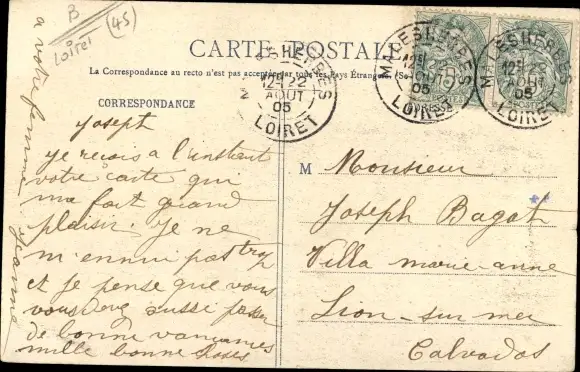 B
Loiret
(45)
CARTE POSTALE
La Correspondance au recto n'est pas acceptée par tous les Pays Étrangers (Se
CORRESPONDANCE
MALESHERBES
12H 22
AOUT
05
LOIRET
MALESHERBES
12H
AOUT
05
LOIRET
MALESHERBES
12H
AOUT
05
LOIRET
POSTES
Joseph
Je reçois a l'instant
votre carte qui
ma fait grand
plaisir. Je ne
m'ennui pas trop
et je pense que vous
vous
aussi passer
de bonne vancances
mille bonne choses
a votre femme
Jeanne
M Monsieur
Joseph Bagot
Villa marie-anne
Lion-sur mer
Calvados